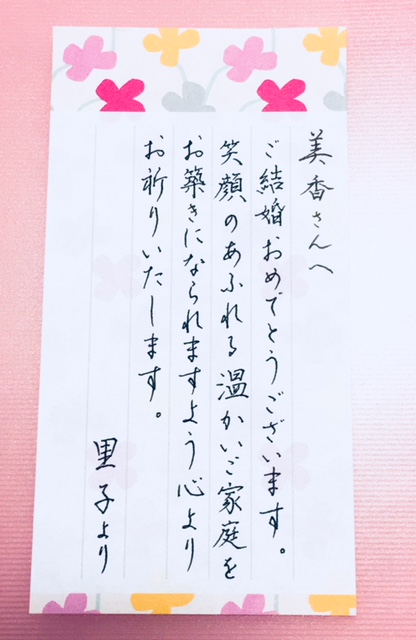 美香さんへ
ご結婚おめでとうございます。
笑顔のあふれる温かいご家庭を
お築きになられますよう心より
お祈りいたします。
里子より